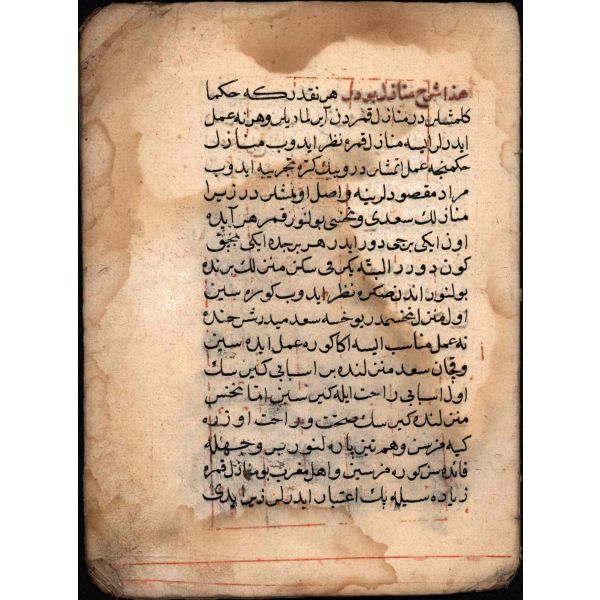 هذا شرح منازل بودر هر نقدر كه حكما
كلمشلر در منازل قمردن آيرلماديلر وهر نه عمل
ايدرلر ايسه منازل قمره نظر ايدوب منازل
حكمنجه عمل اتمشلر در وبيك كره تجربه ايدوب
مراد مقصودلرينه واصل اولمشلر در زيرا
منازلك سعدى ونحسى بولنور قمر هر آيده
اون ايكى برجى دور ايدر هر برجده ايكى بچق
كون دورر البته يكرمى سكز منزلك برنده
بولنور اندنصكره نظر ايدوب كوره سين
اول منزل نحسميدر يوخسه سعد ميدر شرحنده
نه عمل مناسب ايسه اكا كوره عمل ايده سين
وقچان سعد منزلنده بر اسبابى كيرسك
اول اسبابى راحت ايله كيرسين اما نحس
منزلنده كيرسك صحت وراحت اوزره
كيه مزسن وهم تيز پاره لنور بر وجهله
فائده سن كوره مزسين واهل مغرب بو منازل قمره
زياده سيله پك اعتبار ايدرلر زيرا ايدى